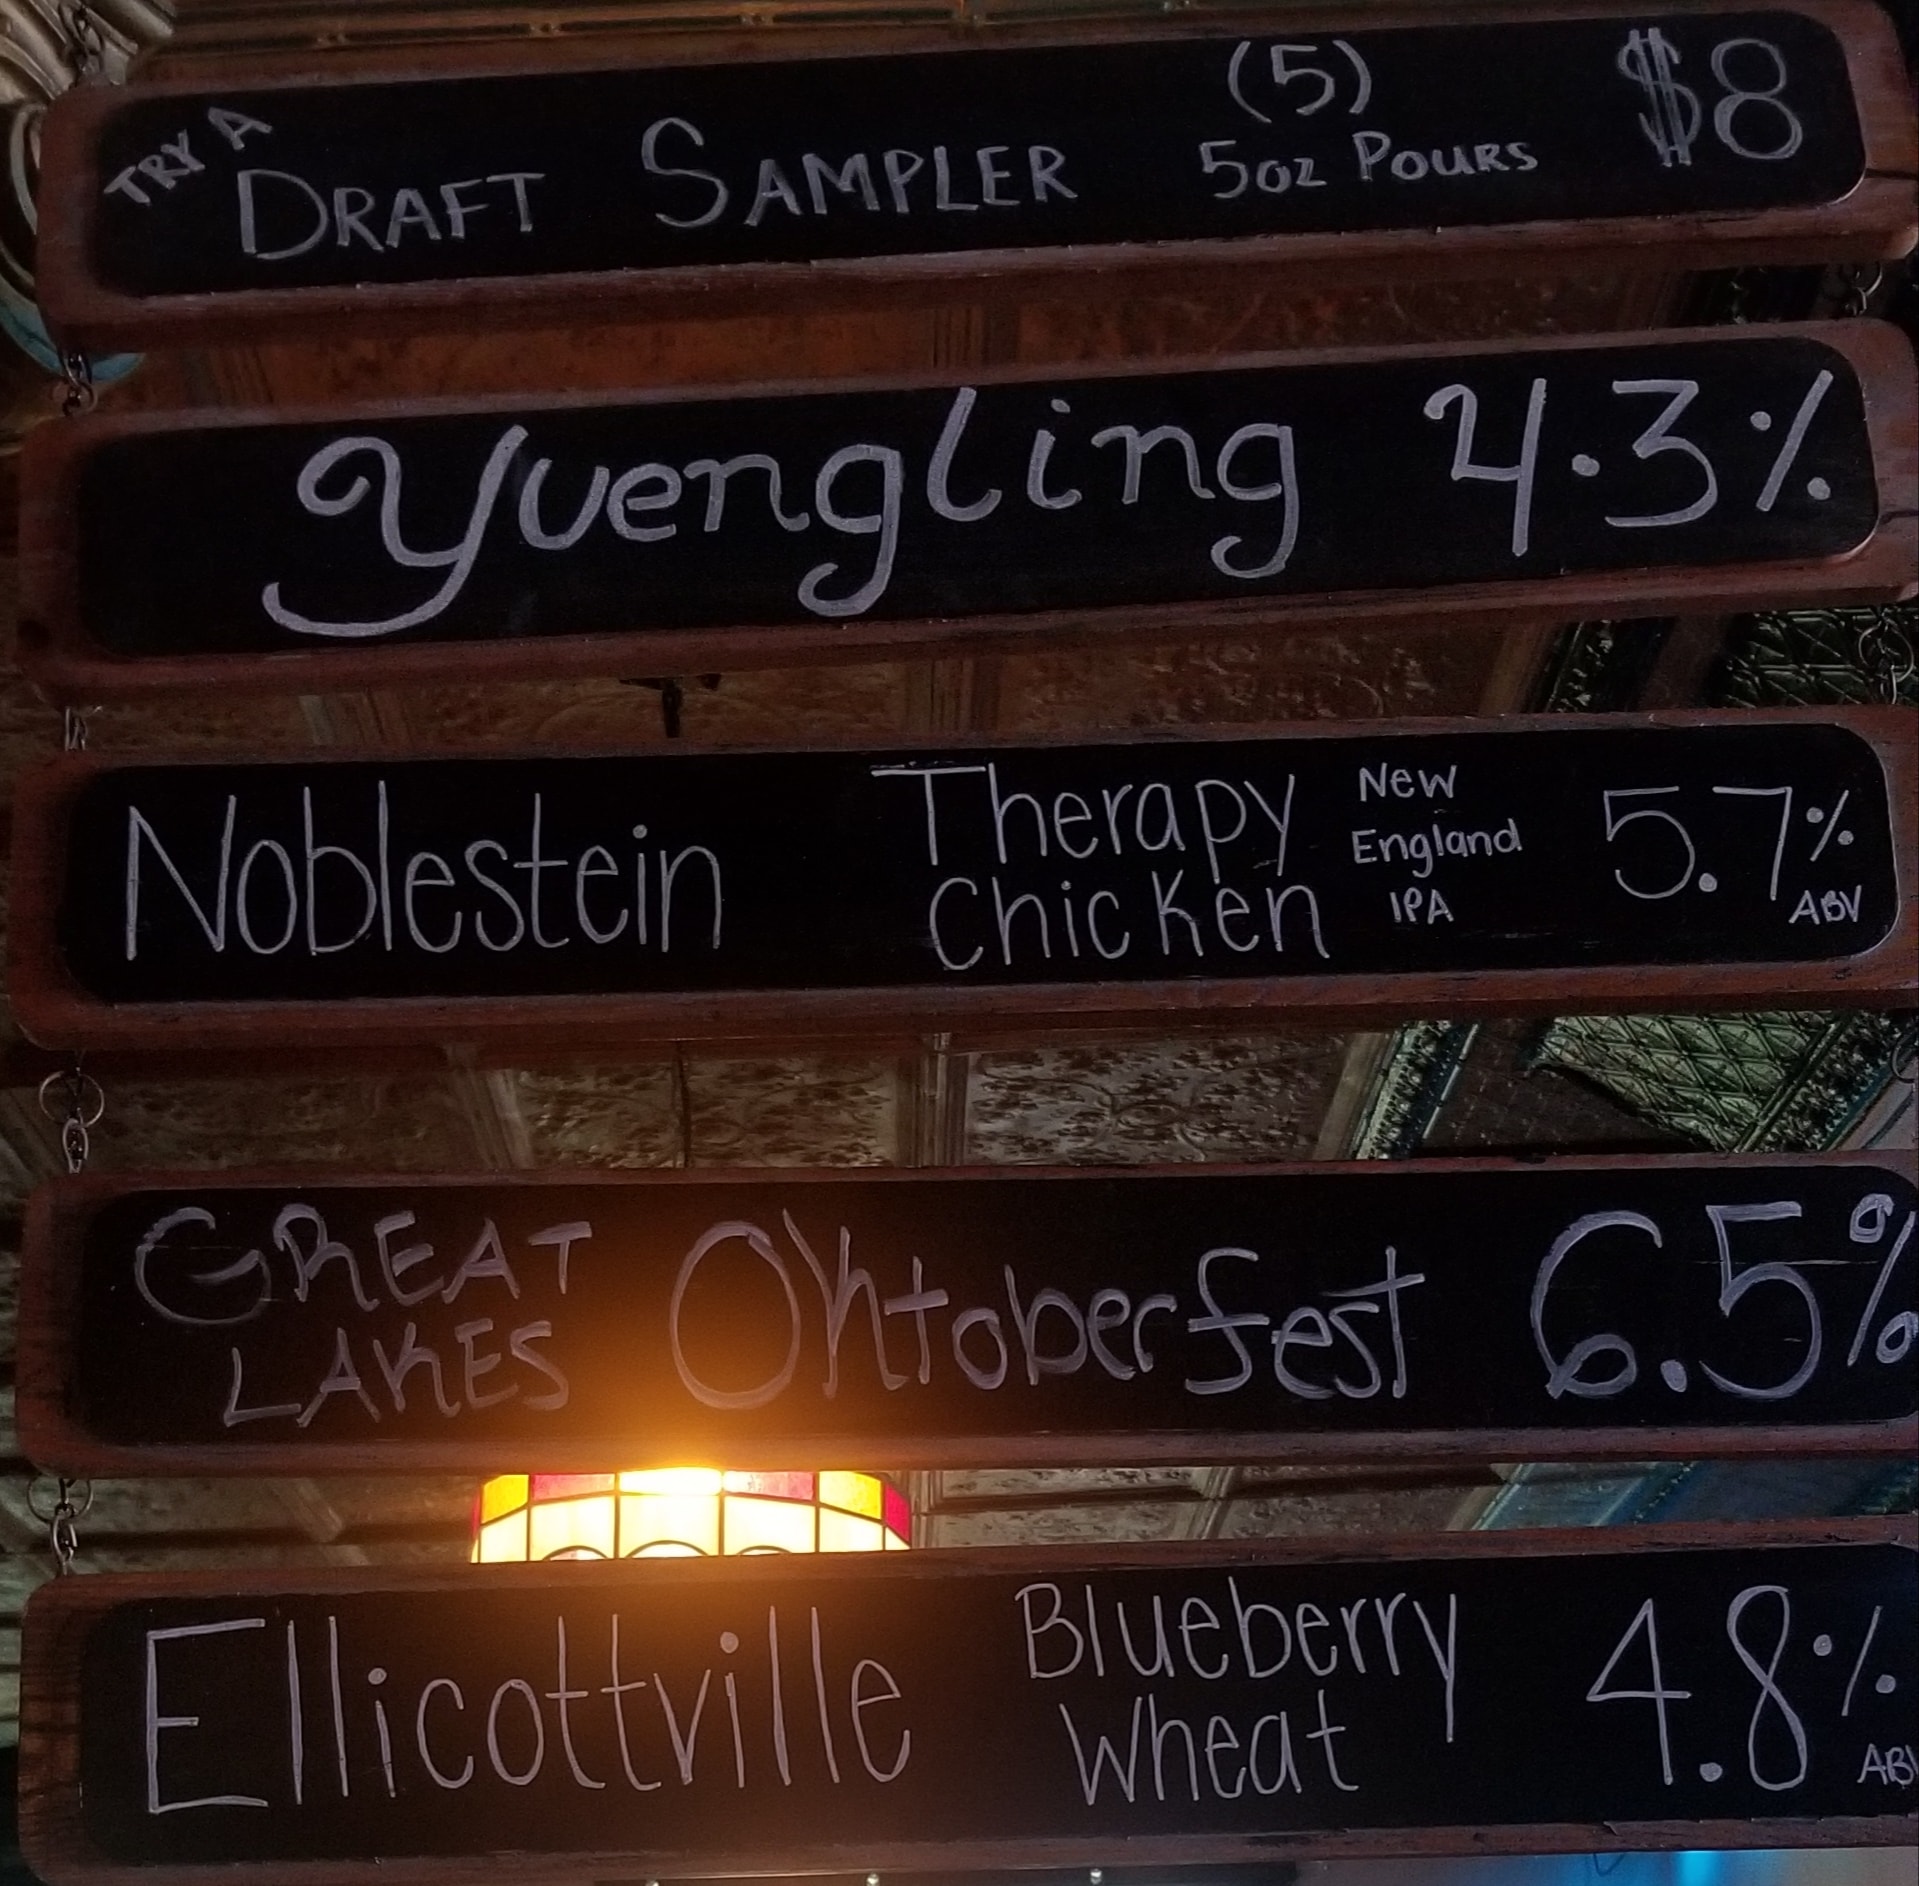 TRY A DRAFT SAMPLER (5) $8
5oz POURS
Yuengling 4.3%
Noblestein Therapy Chicken New England IPA 5.7% ABV
GREAT LAKES Oktoberfest 6.5%
Ellicottville Blueberry Wheat 4.8% ABV